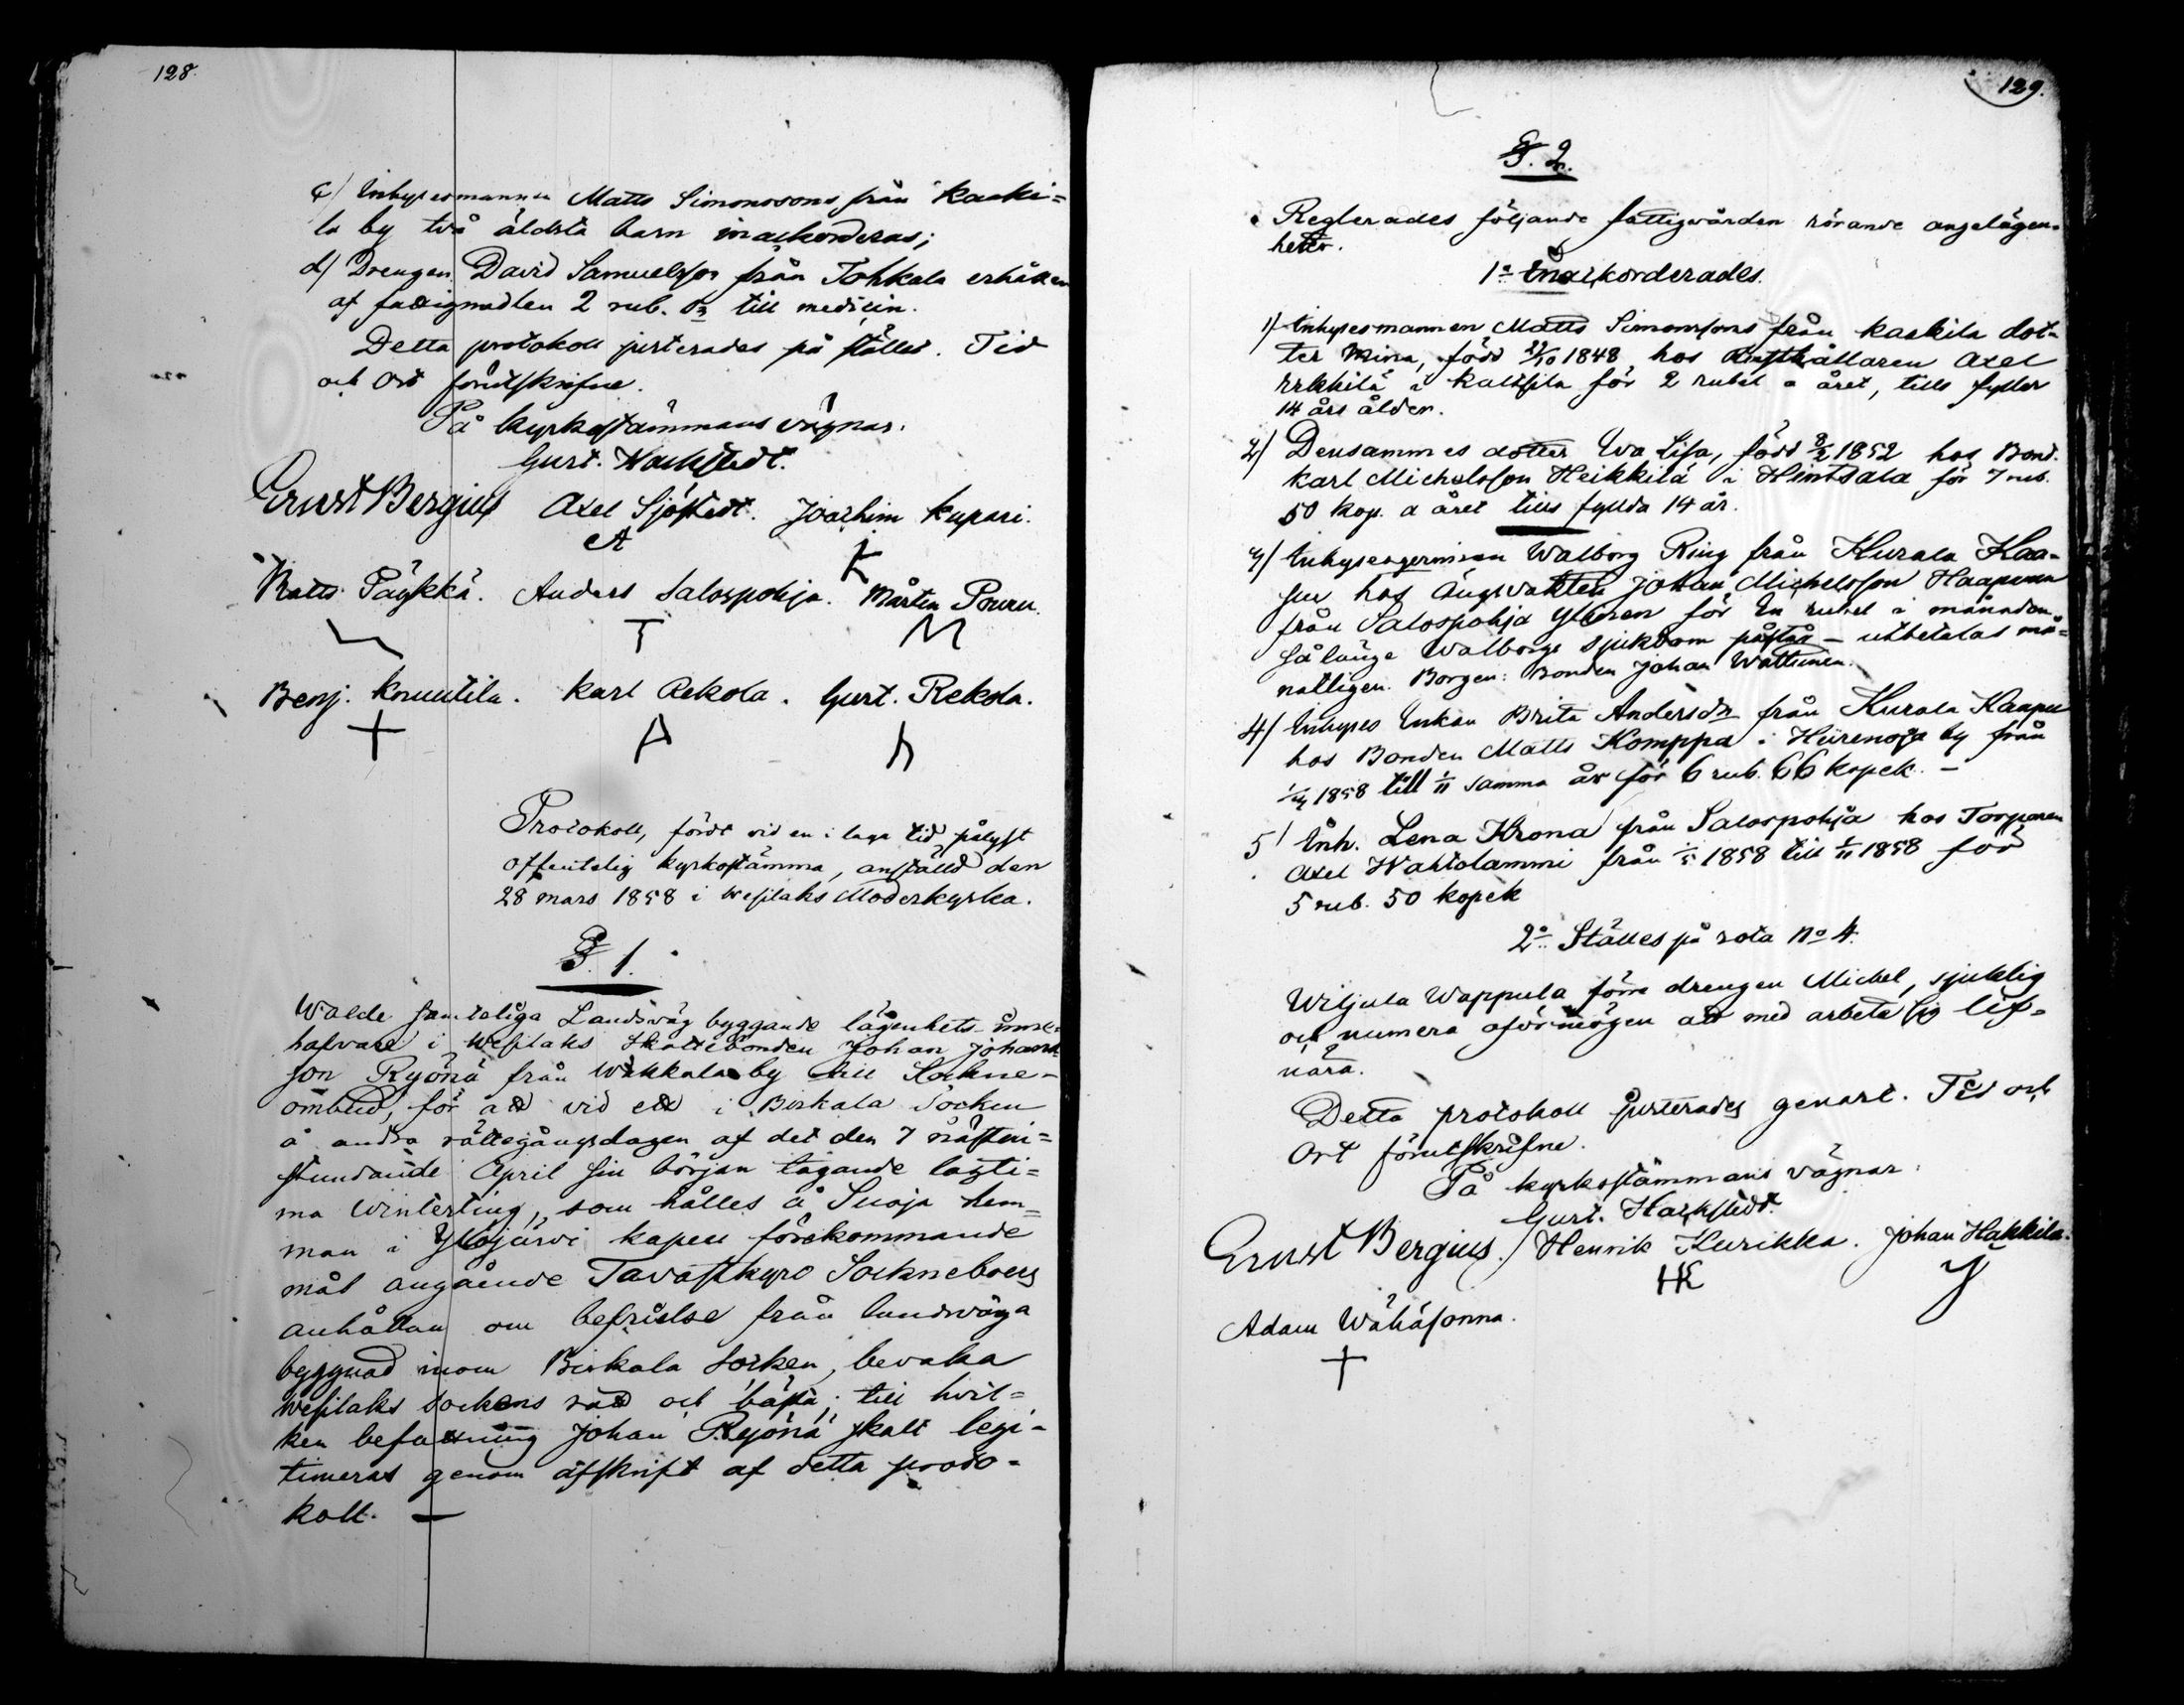 128.
c) Inhysesmannen Matts Simonssons från Kaski=
la by två äldsta barn inackorderas;
d) Drengen David Samuelsson från Tohkala erhåller
af fattigmedlen 2 rub. Sr till medicin.
Detta protokoll justerades på stället. Tid
och Ort förutskrifne.
På kyrkostämmans vägnar.
Gust. Hackstedt.
Ernst Bergius Axel Sjöstedt. Joachim Kupari.
A K
Matts Päykkä. Anders Salospohja. Mårten Pouru.
T M
Benj. Knuutila. Karl Rekola. Gust. Rekola.
A
Protokoll, fördt vid en i laga tid pålyst
offentelig kyrkostämma, anställd den
28 mars 1858 i Wesilaks Moderkyrka.
§. 1.
Walde samteliga Landsväg byggande lägenhets inne=
hafvare i Wesilaks Skattebonden Johan Johans=
son Ryönä från Wakkala by till Sockne=
ombud, för att vid ett i Birkala Socken
å andra rättegångsdagen af det den 7 nästin=
stundande April sin början tagande lagti=
ma Winterting, som hålles å Suoja hem=
man i Ylöjärvi kapell förekommande
mål angående Tavastkyro Sockneboers
anhållan om befrielse från landsväga
byggnad inom Birkala Socken, bevaka
Wesilaks Sockens rätt och bästa; till hvil=
ken befattning Johan Ryönä skall legi=
timeras genom afskrift af detta proto=
koll. —
129.
§. 2.
Reglerades följande fattigvården rörande angelägen=
heter.
1o Inackorderades.
1) Inhysesmannen Matts Simonssons från Kaskila dot=
ter Mina, född 22/10 1848 hos Rusthållaren Axel
Erkkilä i Kaltsila för 2 rubel a året, tills fyller
14 års ålder.
2) Densammes dotter Eva Lisa, född 8/2 1852 hos Bond.
Karl Michelsson Heikkilä i Hintsala för 7 rub.
50 kop. a året tills fyllda 14 år.
3) Inhyseqvinnan Walborg Ring från Kurala Kaa=
pu hos Ängsvakten Johan Michelsson Haapanen
från Salospohja Ylänen för En rubel i månaden,
så länge Walborgs sjukdom påstår — utbetalas må=
natligen. Borgen: Bonden Johan Wattunen.
4) Inhyses Enkan Brita Andersdr från Kurala Kaapu
hos Bonden Matts Komppa i Hiirenoja by från
1/4 1858 till 1/11 samma år för 6 rub. 66 kopek. —
5) Inh. Lena Krona från Salospohja hos Torparen
Axel Wahtolammi från 1/5 1858 till 1/11 1858 för
5 rub. 50 kopek
2o Ställes på rota No 4.
Wiljula Wappula förre drengen Michel, sjuklig
och numera oförmögen att med arbeta sig lif=
nära.
Detta protokoll justerades genast. Tid och
Ort förutskrifne.
På kyrkostämmans vägnar
Gust. Hackstedt.
Ernst Bergius. Henrik Kurikka. Johan Hakkila.
HK
Adam Wähäsonna.